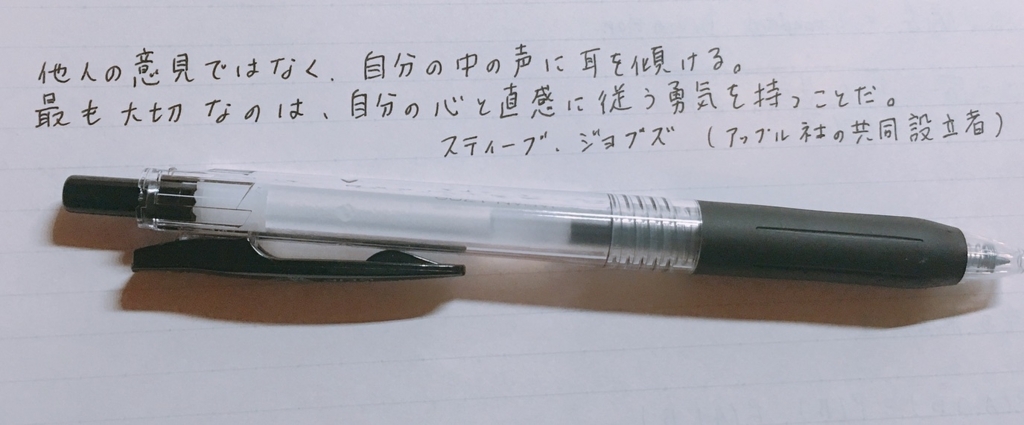 他人の意見ではなく、自分の中の声に耳を傾ける。
最も大切なのは、自分の心と直感に従う勇気を持つことだ。
スティーブ・ジョブズ (アップル社の共同設立者)